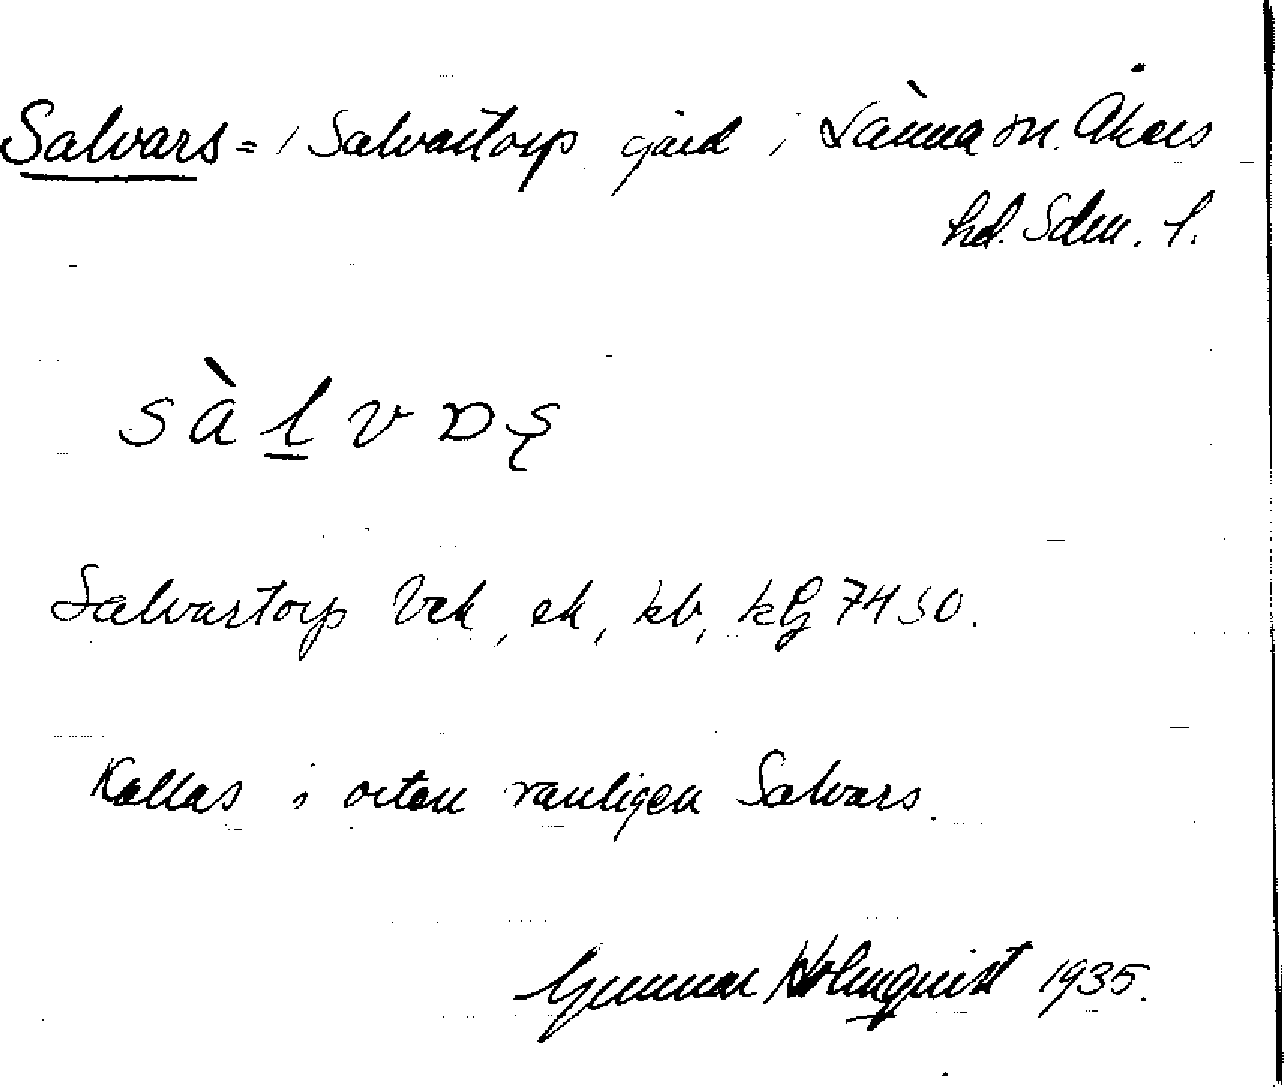 Salvars = / Salvartorp gård i Länna sn. Åkers
hd. Sdm. l.
sàl̲v
Salvartorp
Kallas i orten vanligen Salvars.
Gunnar Holmquist 1935.